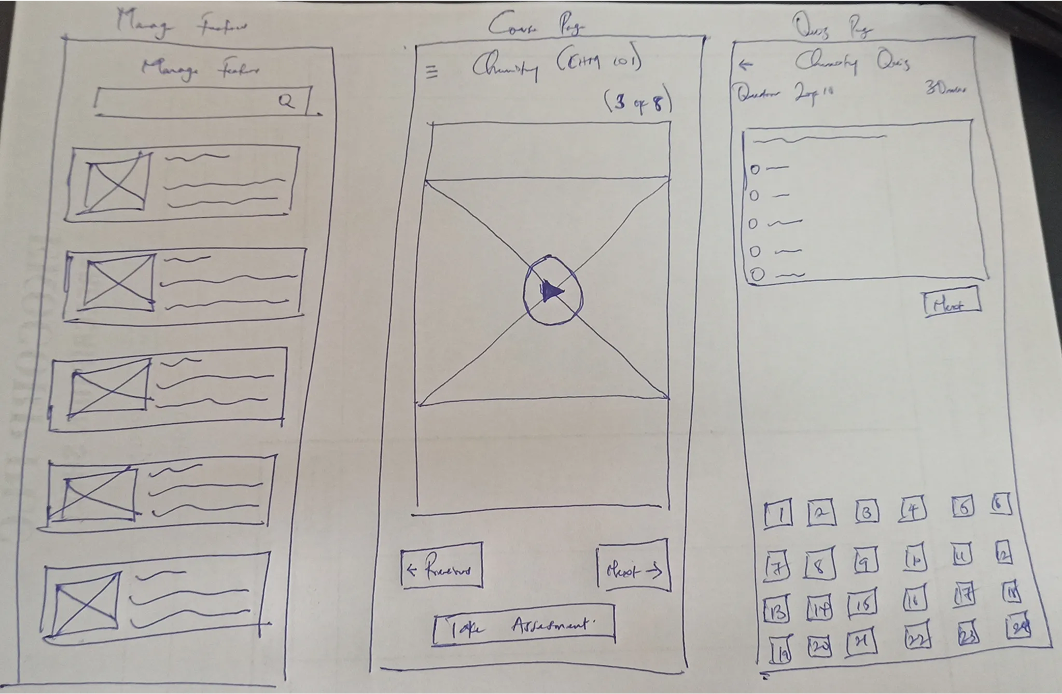 Manag Feature
Manage Feature
Course Page
Chemistry (CHM 101)
(3 of 8)
← Previous
Next →
Take Assessment
Quiz Page
← Chemistry Quiz
Question 2 of
30 mins
Next
1 2 3 4 5 6
7 8 9 10 11 12
13 14 15 16 17 18
19 20 21 22 23 24